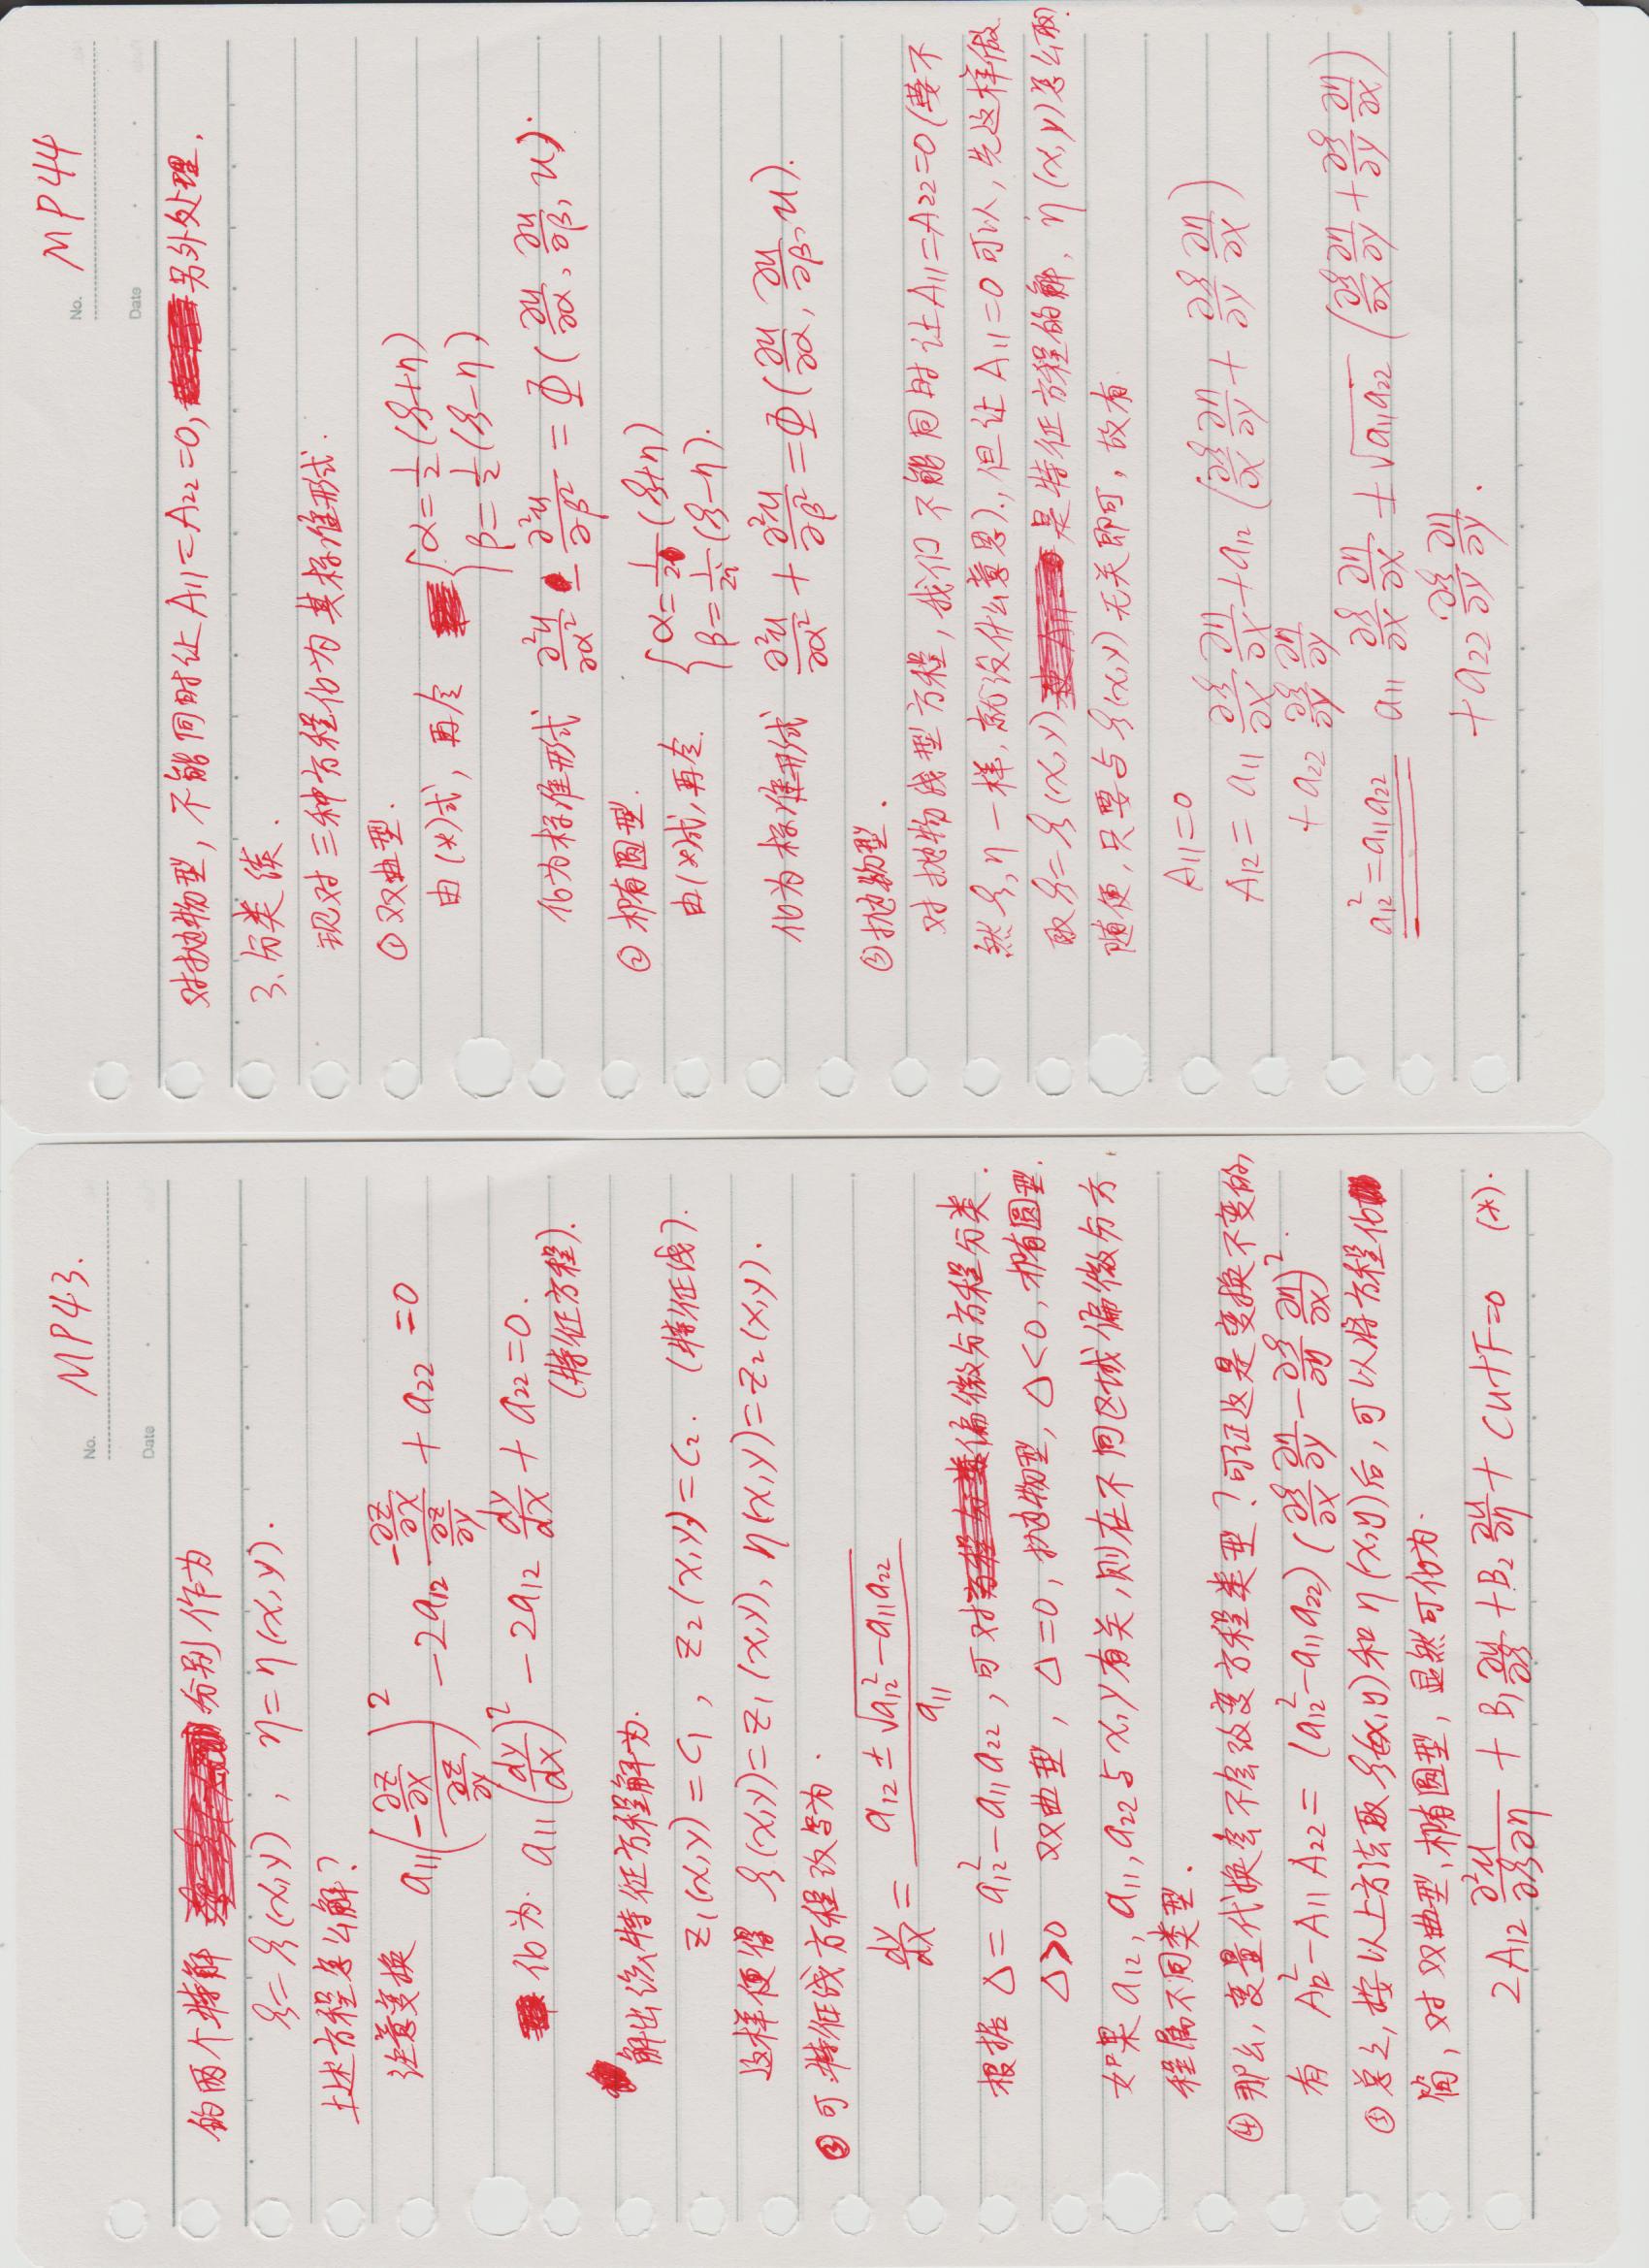 No. MP43.
Date
的两个特解 分别作为
ξ=ξ(x,y), η=η(x,y).
上述方程怎么解?
注意变换 a₁₁(-∂z/∂x / ∂z/∂y)² - 2a₁₂ (-∂z/∂x / ∂z/∂y) + a₂₂ = 0
化为. a₁₁(dy/dx)² - 2a₁₂ dy/dx + a₂₂ = 0.
(特征方程).
解出该特征方程解为.
z₁(x,y)=C₁, z₂(x,y)=C₂. (特征线).
这样便得 ξ(x,y)=z₁(x,y), η(x,y)=z₂(x,y).
③ 可特征线方程改写为.
dy/dx = (a₁₂ ± √(a₁₂² - a₁₁a₂₂)) / a₁₁
根据 Δ = a₁₂² - a₁₁a₂₂, 可对偏微分方程分类.
Δ>0 双曲型, Δ=0, 抛物型, Δ<0, 椭圆型.
如果 a₁₂, a₁₁, a₂₂与x,y有关,则在不同区域偏微分方
程属不同类型.
④ 那么,变量代换会不会改变方程类型?可证这是变换不变的,
有 A₁₂² - A₁₁A₂₂ = (a₁₂² - a₁₁a₂₂)(∂ξ/∂x ∂η/∂y - ∂ξ/∂y ∂η/∂x)².
⑤ 总之,按以上方法取ξ(x,y)和η(x,y)后,可以将方程化
简,对双曲型,椭圆型,显然可化为.
2A₁₂ ∂²u/∂ξ∂η + B₁ ∂u/∂ξ + B₂ ∂u/∂η + Cu+F=0 (*).
No. MP44
Date
对抛物型,不能同时让A₁₁=A₂₂=0, 另外处理.
3、分类续.
现对三种方程化为其标准形式.
① 双曲型.
由(*)式,再令 { α=1/2(ξ+η)
β=1/2(ξ-η)
化为标准形式 ∂²u/∂α² - ∂²u/∂β² = Φ(∂u/∂α, ∂u/∂β, u).
② 椭圆型.
由(*)式,再令. { α=1/2(ξ+η)
β=1/2i(ξ-η).
化为标准形式 ∂²u/∂α² + ∂²u/∂β² = Φ(∂u/∂α, ∂u/∂β, u).
③ 抛物型.
对抛物线型方程,我们不能同时让A₁₁=A₂₂=0(要不
然ξ,η一样,就没什么意思).,但让A₁₁=0可以,先这样做
取ξ=ξ(x,y) 是特征方程的解, η(x,y)怎么取?
随便,只要与ξ(x,y)无关即可,故有
A₁₁=0
A₁₂ = a₁₁ ∂ξ/∂x ∂η/∂x + a₁₂ (∂ξ/∂x ∂η/∂y + ∂ξ/∂y ∂η/∂x)
+ a₂₂ ∂ξ/∂y ∂η/∂y
a₁₂²=a₁₁a₂₂ a₁₁ ∂ξ/∂x ∂η/∂x ± √a₁₁a₂₂ (∂ξ/∂x ∂η/∂y + ∂ξ/∂y ∂η/∂x)
+ a₂₂ ∂ξ/∂y ∂η/∂y.